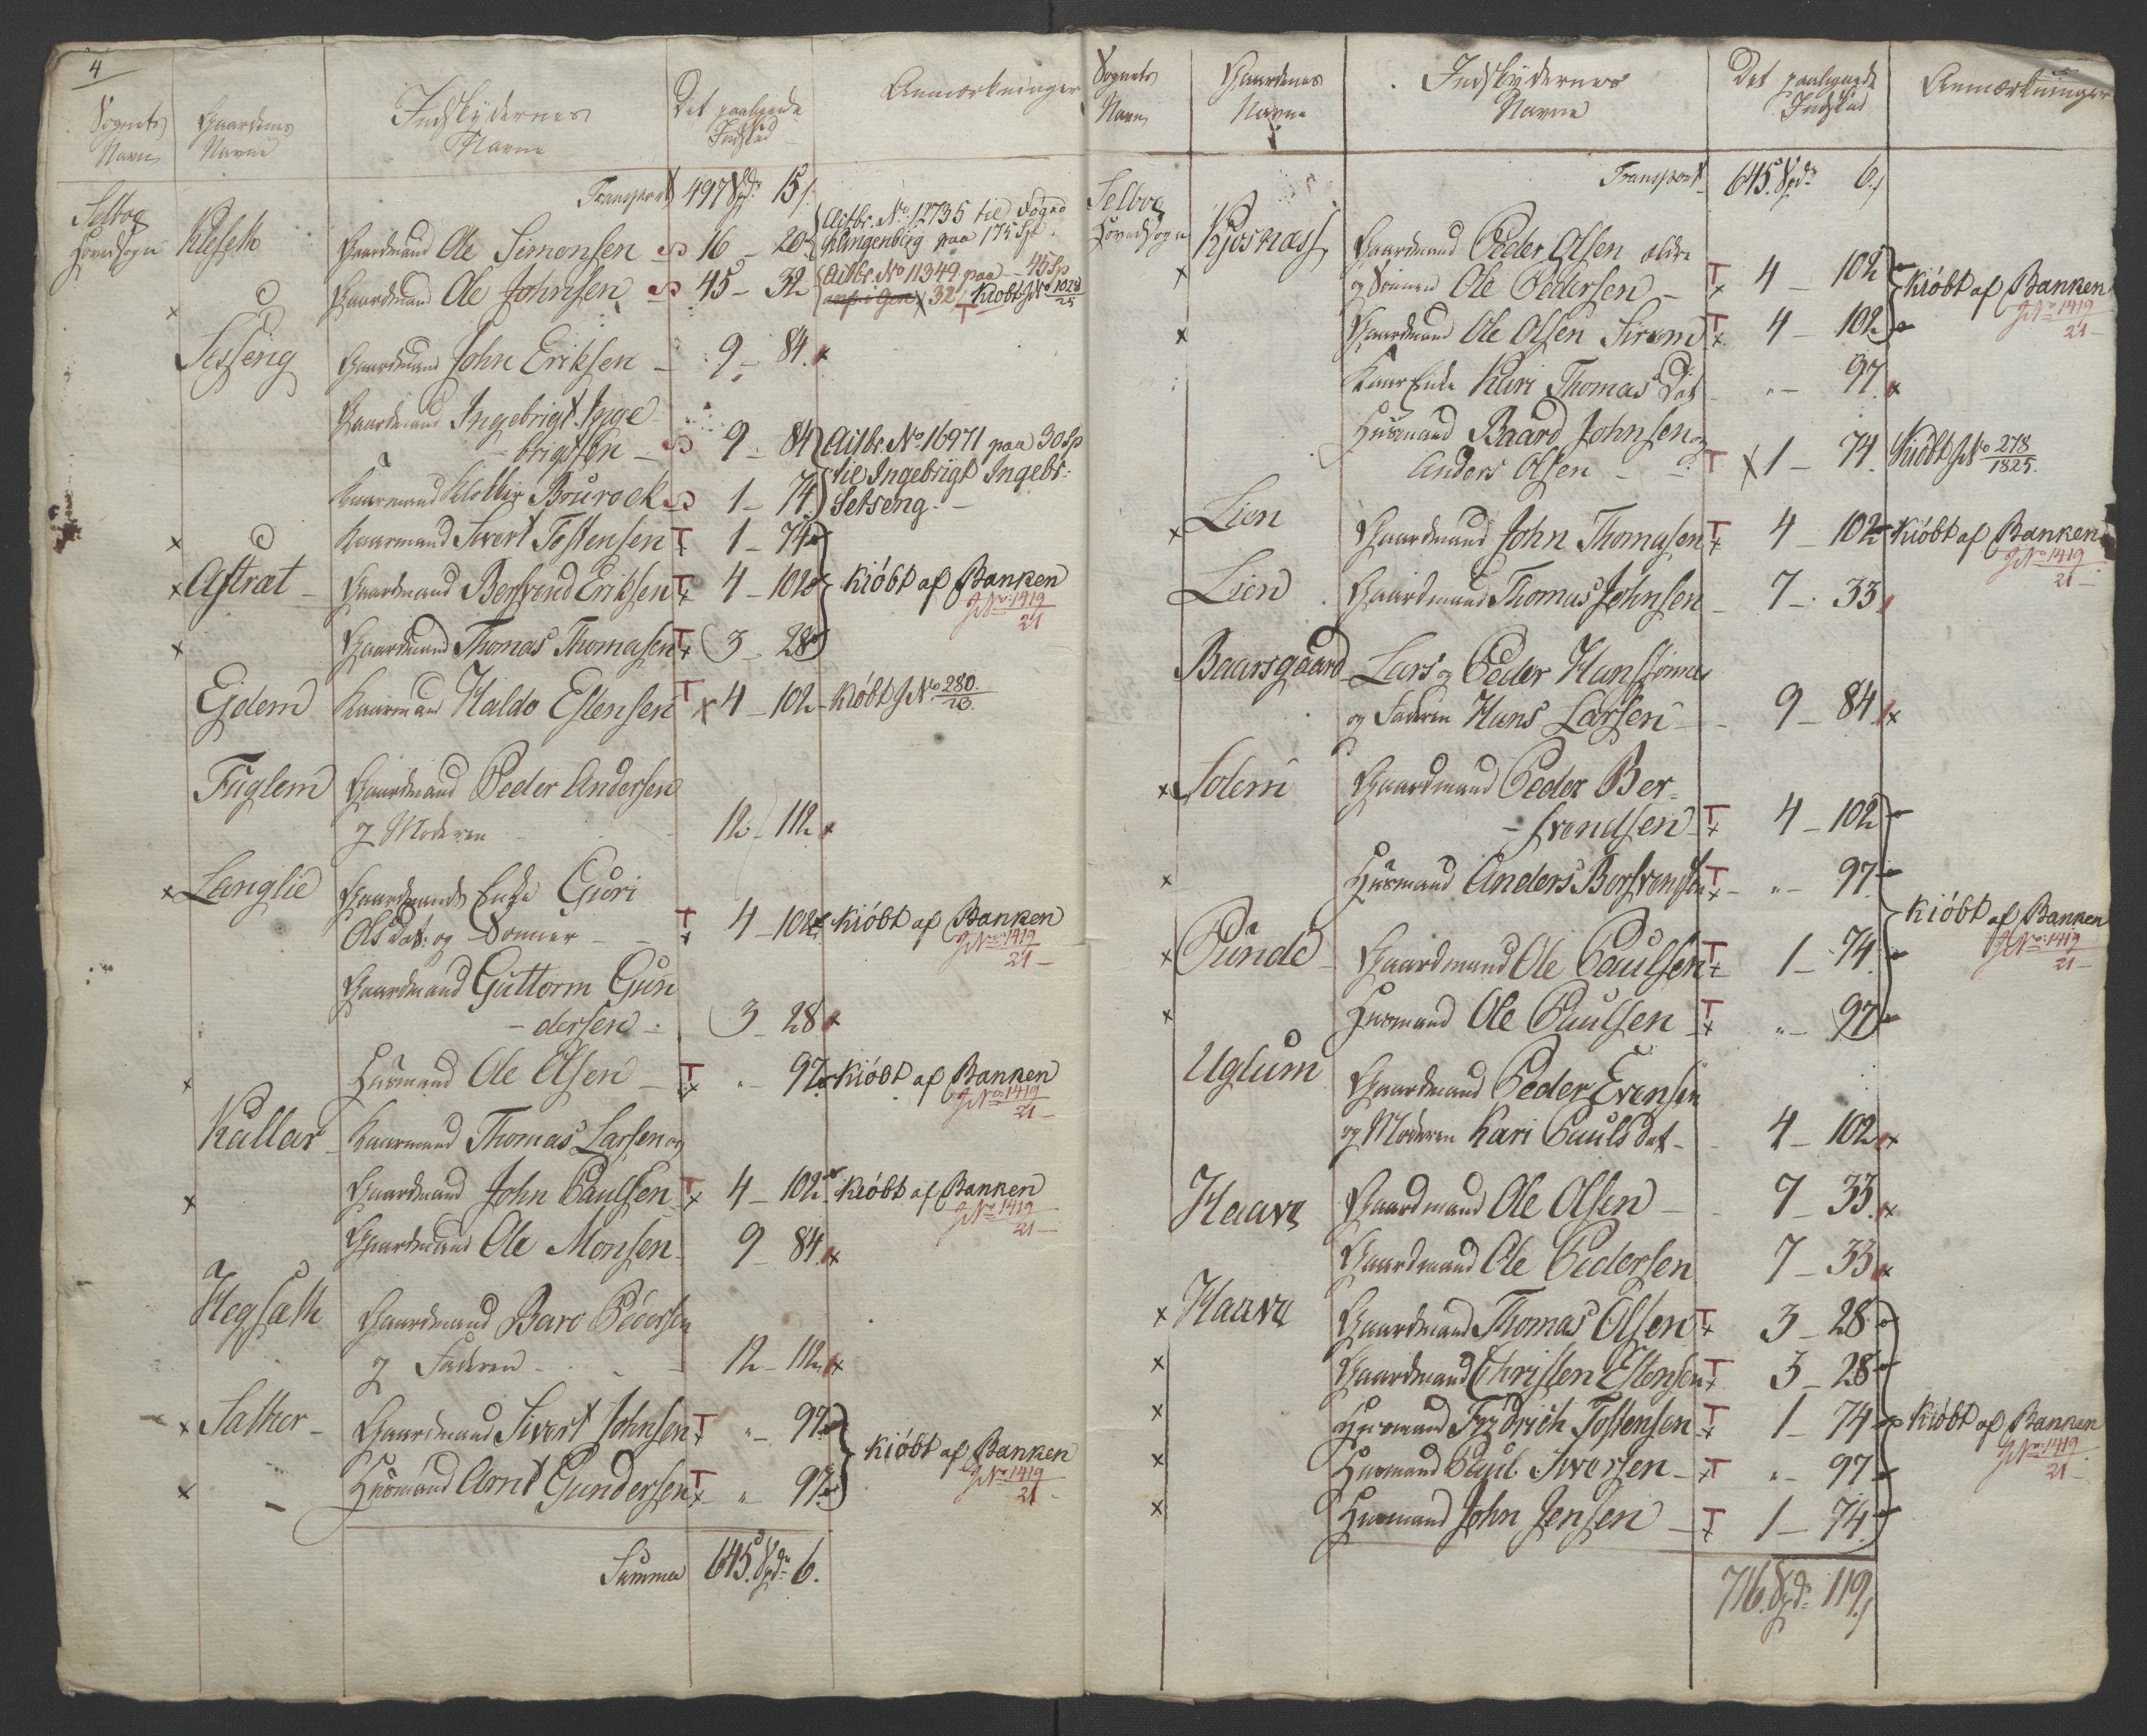 4
Sognets Navn | Gaardenes Navne | Indskydernes Navne | Det paaligende Indskud | Anmærkninger
Transport 497 Spdr 15 s
Selboe Hovedsogn | Kleseth | Gaardmand Ole Simonsen 16 - 20 | Actbr. No 12735 til Ole Klingenberg paa 175 Sp
Gaardmand Ole Johnsen 45 - 32 | Actbr. No 11349 paa - 45 Sp
32 Kiøbt JNo 1028/25
Sesseng | Gaardmand John Eriksen - 9 - 84 x
Gaardmand Ingebrigt Inge-
brigtsen - 9 - 84 | Actbr. No 16971 paa 30 Sp
Kaarmand Brurock 1 - 74 | til Ingebrigt Ingebr: Setseng -
x Kaarmand Sivert Tostensen T x 1 - 74
x Astræt - Gaardmand Bersvend Eriksen T x 4 - 102 | Kiøbt af Banken JNo 1419/21
x Gaardmand Thomas Thomasen T x 3 - 28
Ejdem | Kaarmand Haldo Estensen T x 4 - 102 - Kiøbt JNo 280/
Fuglem | Gaardmand Peder Andersen
og Moderen - 12 - 112 x
x Langlie | Gaardmands Enke Guri
Ols Dat: og Sønner - T x 4 - 102 Kiøbt af Banken JNo 1419/21 -
Gaardmand Guttorm Gun
- dersen - 3 - 28 x
x Husmand Ole Olsen - T x " - 97 Kiøbt af Banken JNo 1419/21 -
Kallar - Kaarmand Thomas Larsen og
x Gaardmand John Paulsen T x 4 - 102 Kiøbt af Banken JNo 1419/21 -
Gaardmand Ole Monsen - 9 - 84 x
Hegsæth | Gaardmand Baro Pedersen
og Faderen - 12 - 112 x
x Sather - Gaardmand Sivert Johnsen T x " - 97 | Kiøbt af Banken JNo 1419/21 -
x - Husmand Arnt Gundersen T x " - 97
Summa 645 Spdr 6.
Sognets Navn | Gaardenes Navne | Indskydernes Navne | Det paaligende Indskud | Anmærkninger
Transport 645 Spdr 6 s
Selboe Hovedsogn | Kjøsnæss | Gaardmand Peder Olsen ældre
x og Sønnen Ole Pedersen - T x 4 - 102 | Kiøbt af Banken JNo 1419/21 -
x Gaardmand Ole Olsen T x 4 - 102
Kaar Enke Kari Thomas Dat - " - 97 x
Husmand Baard Johnsen og
Anders Olsen - T x 1 - 74 Kiøbt JNo 278/1825.
x Lien | Gaardmand John Thomasen T x 4 - 102 Kiøbt af Banken JNo 1419/21 -
Lien | Gaardmand Thomas Johnsen - 7 - 33
Baarsgaard | Lars og Peder Hans Sønner
og Faderen Hans Larsen - 9 - 84 x
x Solem | Gaardmand Peder Ber-
- svendsen - T x 4 - 102
x Husmand Anders Bersvendsen T x - " - 97
Kiøbt af Banken JNo 1419/21 -
x Punde - Gaardmand Ole Paulsen T x 1 - 74
x Husmand Ole Paulsen - T x " - 97
Uglum | Gaardmand Peder Evensen
og Moderen Kari Pauls Dat - 4 - 102 x
Haave | Gaardmand Ole Olsen - 7 - 33 x
Gaardmand Ole Pedersen 7 - 33 x
x Haave | Gaardmand Thomas Olsen T x 3 - 28
x Gaardmand Christen Estensen T x 3 - 28
x Husmand Fridrich Tostensen T x 1 - 74 Kiøbt af Banken JNo 1419/21 -
x Husmand Paul Iversen - T x " - 97
x Husmand John Jensen - T x 1 - 74
716 Spdr 119 s